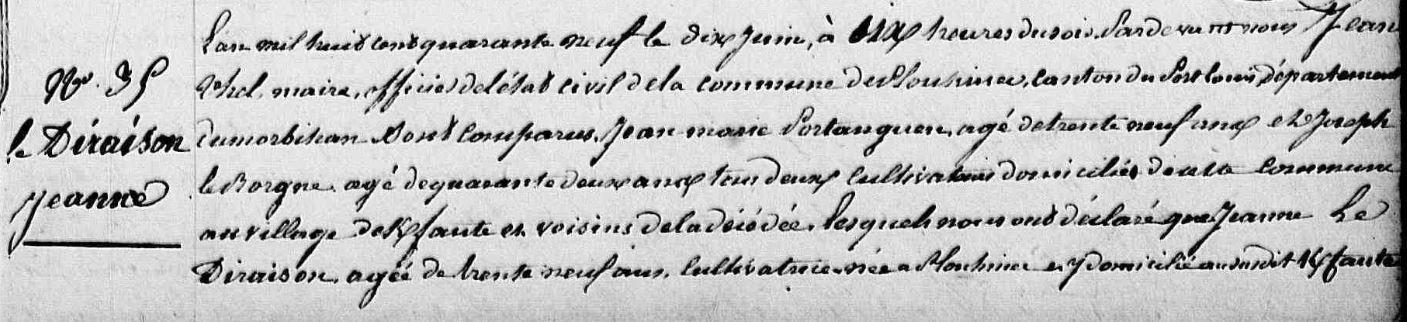 N.° 35
le Diraison
Jeanne
L'an mil huit cent quarante neuf le dix Juin, à six heures du soir. Pardevant nous Jean
maire, officier de l'état civil de la commune de Plouhinec, canton du Port louis, département
du morbihan Sont Comparus, Jean marie Portanguen, agé de trente neuf ans et Joseph
le Borgne, agé de quarante deux ans tous deux cultivateurs domiciliés de cette commune
au village de K/faute et voisins de la décédée. Lesquels nous ont déclaré que Jeanne Le
Diraison, agée de trente neuf ans, Cultivatrice née a Plouhinec et y domicilié au susdit K/faute